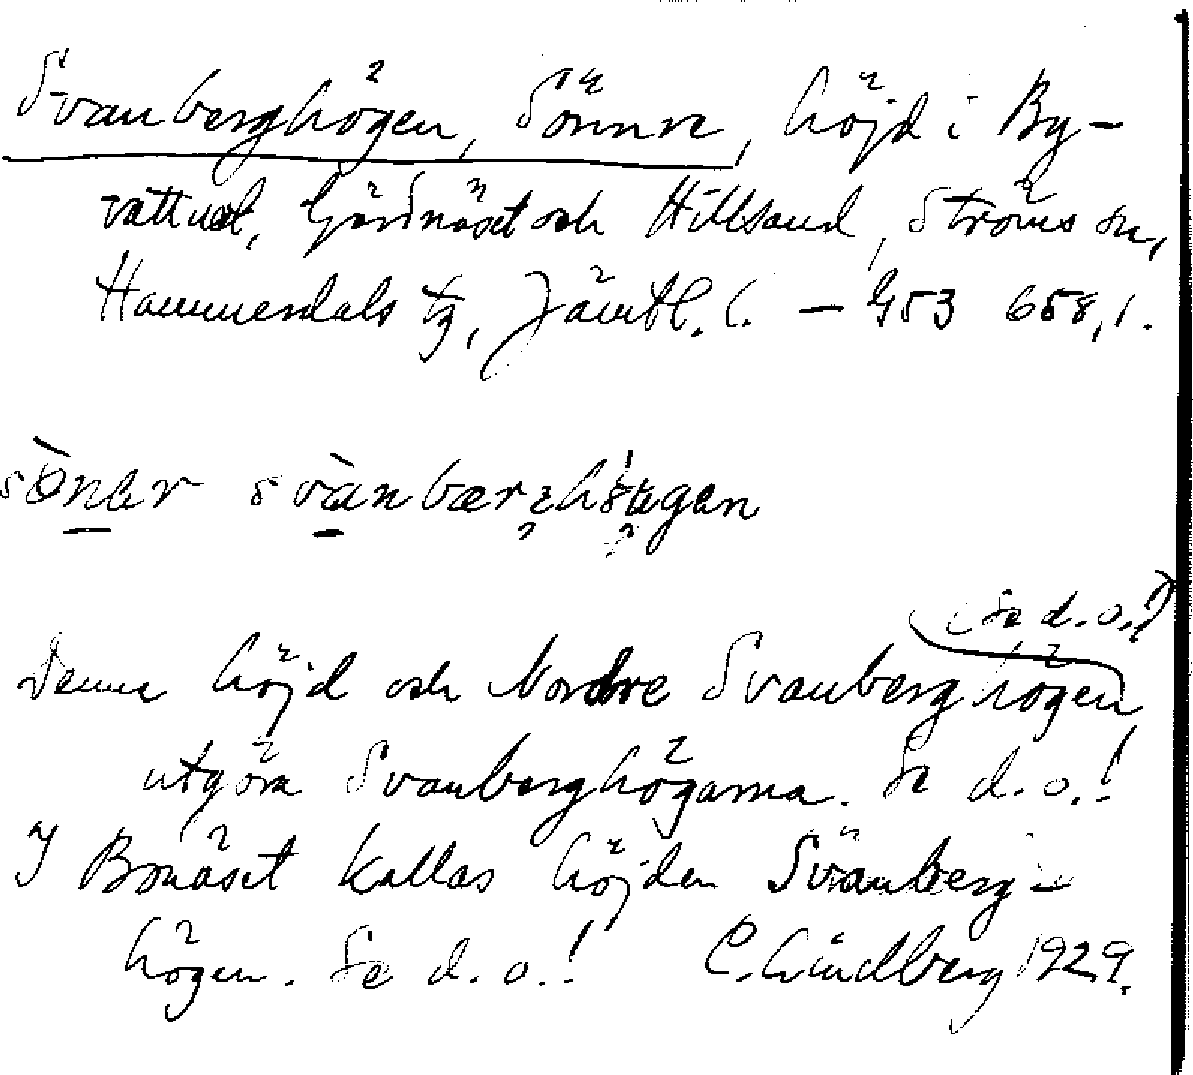 Svanberghögen, Sönnre, höjd i By-
vattnet, Gärdnäset och Hillsand, Ströms sn,
Hammerdals tg, Jämtl. l. — G53 658,1.
Denna höjd och Nordre Svanberghögen (Se d. o.!)
utgöra Svanberghögarna. Se d. o.!
I Bonäset kallas höjden Svanberg-
högen. Se d. o.! C. Lindberg 1929.